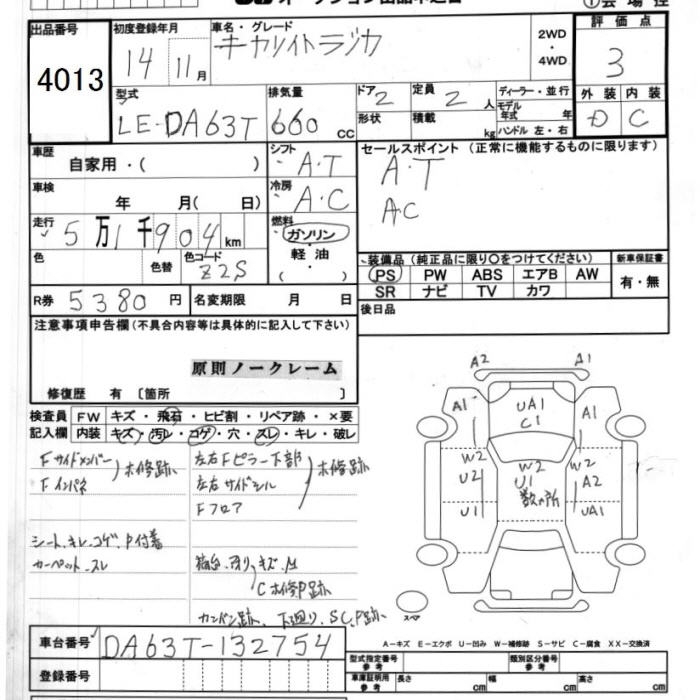 オークション出品申込書
①会場控
出品番号 4013
初度登録年月 14 11月
車名・グレード キャリイトラック
2WD・4WD
評価点 3
型式 LE-DA63T
排気量 660 CC
ドア 2
定員 2 人
ディーラー・並行
形状
積載 kg
モデル年式 年
ハンドル 左・右
外装 D
内装 C
車歴 自家用・( )
シフト A・T
セールスポイント (正常に機能するものに限ります)
A・T
A・C
車検 年 月( 日)
冷房 A・C
走行 5万1千904km
燃料 ガソリン・軽油・( )
色
色替
色コード Z2S
装備品 (純正品に限り〇をつけてください)
PS PW ABS エアB AW
SR ナビ TV カワ
新車保証書 有・無
R券 5380円
名変期限 月 日
後日品
注意事項申告欄 (不具合内容等は具体的に記入して下さい)
原則ノークレーム
修復歴 有 〔箇所 〕
検査員記入欄
FW キズ・飛石・ヒビ割・リペア跡・×要
内装 キズ・汚レ・コゲ・穴・スレ・キレ・破レ
Fサイドメンバー
Fインパネ
ホ修跡
左右Fピラー下部
左右サイドシル
Fフロア
ホ修跡
シート、キレ、コゲ、P付着
カーペット、スレ
C ホ修P跡
下廻り、S、C、P跡
A2 A1
A1 UA1 C1 A1
W2 U2 W2 U1 数ヶ所 W2 A2
U1 UA1
スペア
車台番号 DA63T-132754
登録番号
A-キズ E-エクボ U-凹み W-補修跡 S-サビ C-腐食 XX-交換済
型式指定番号 参考
類別区分番号 参考
車庫証明用 参考 長さ cm 幅 cm 高さ cm